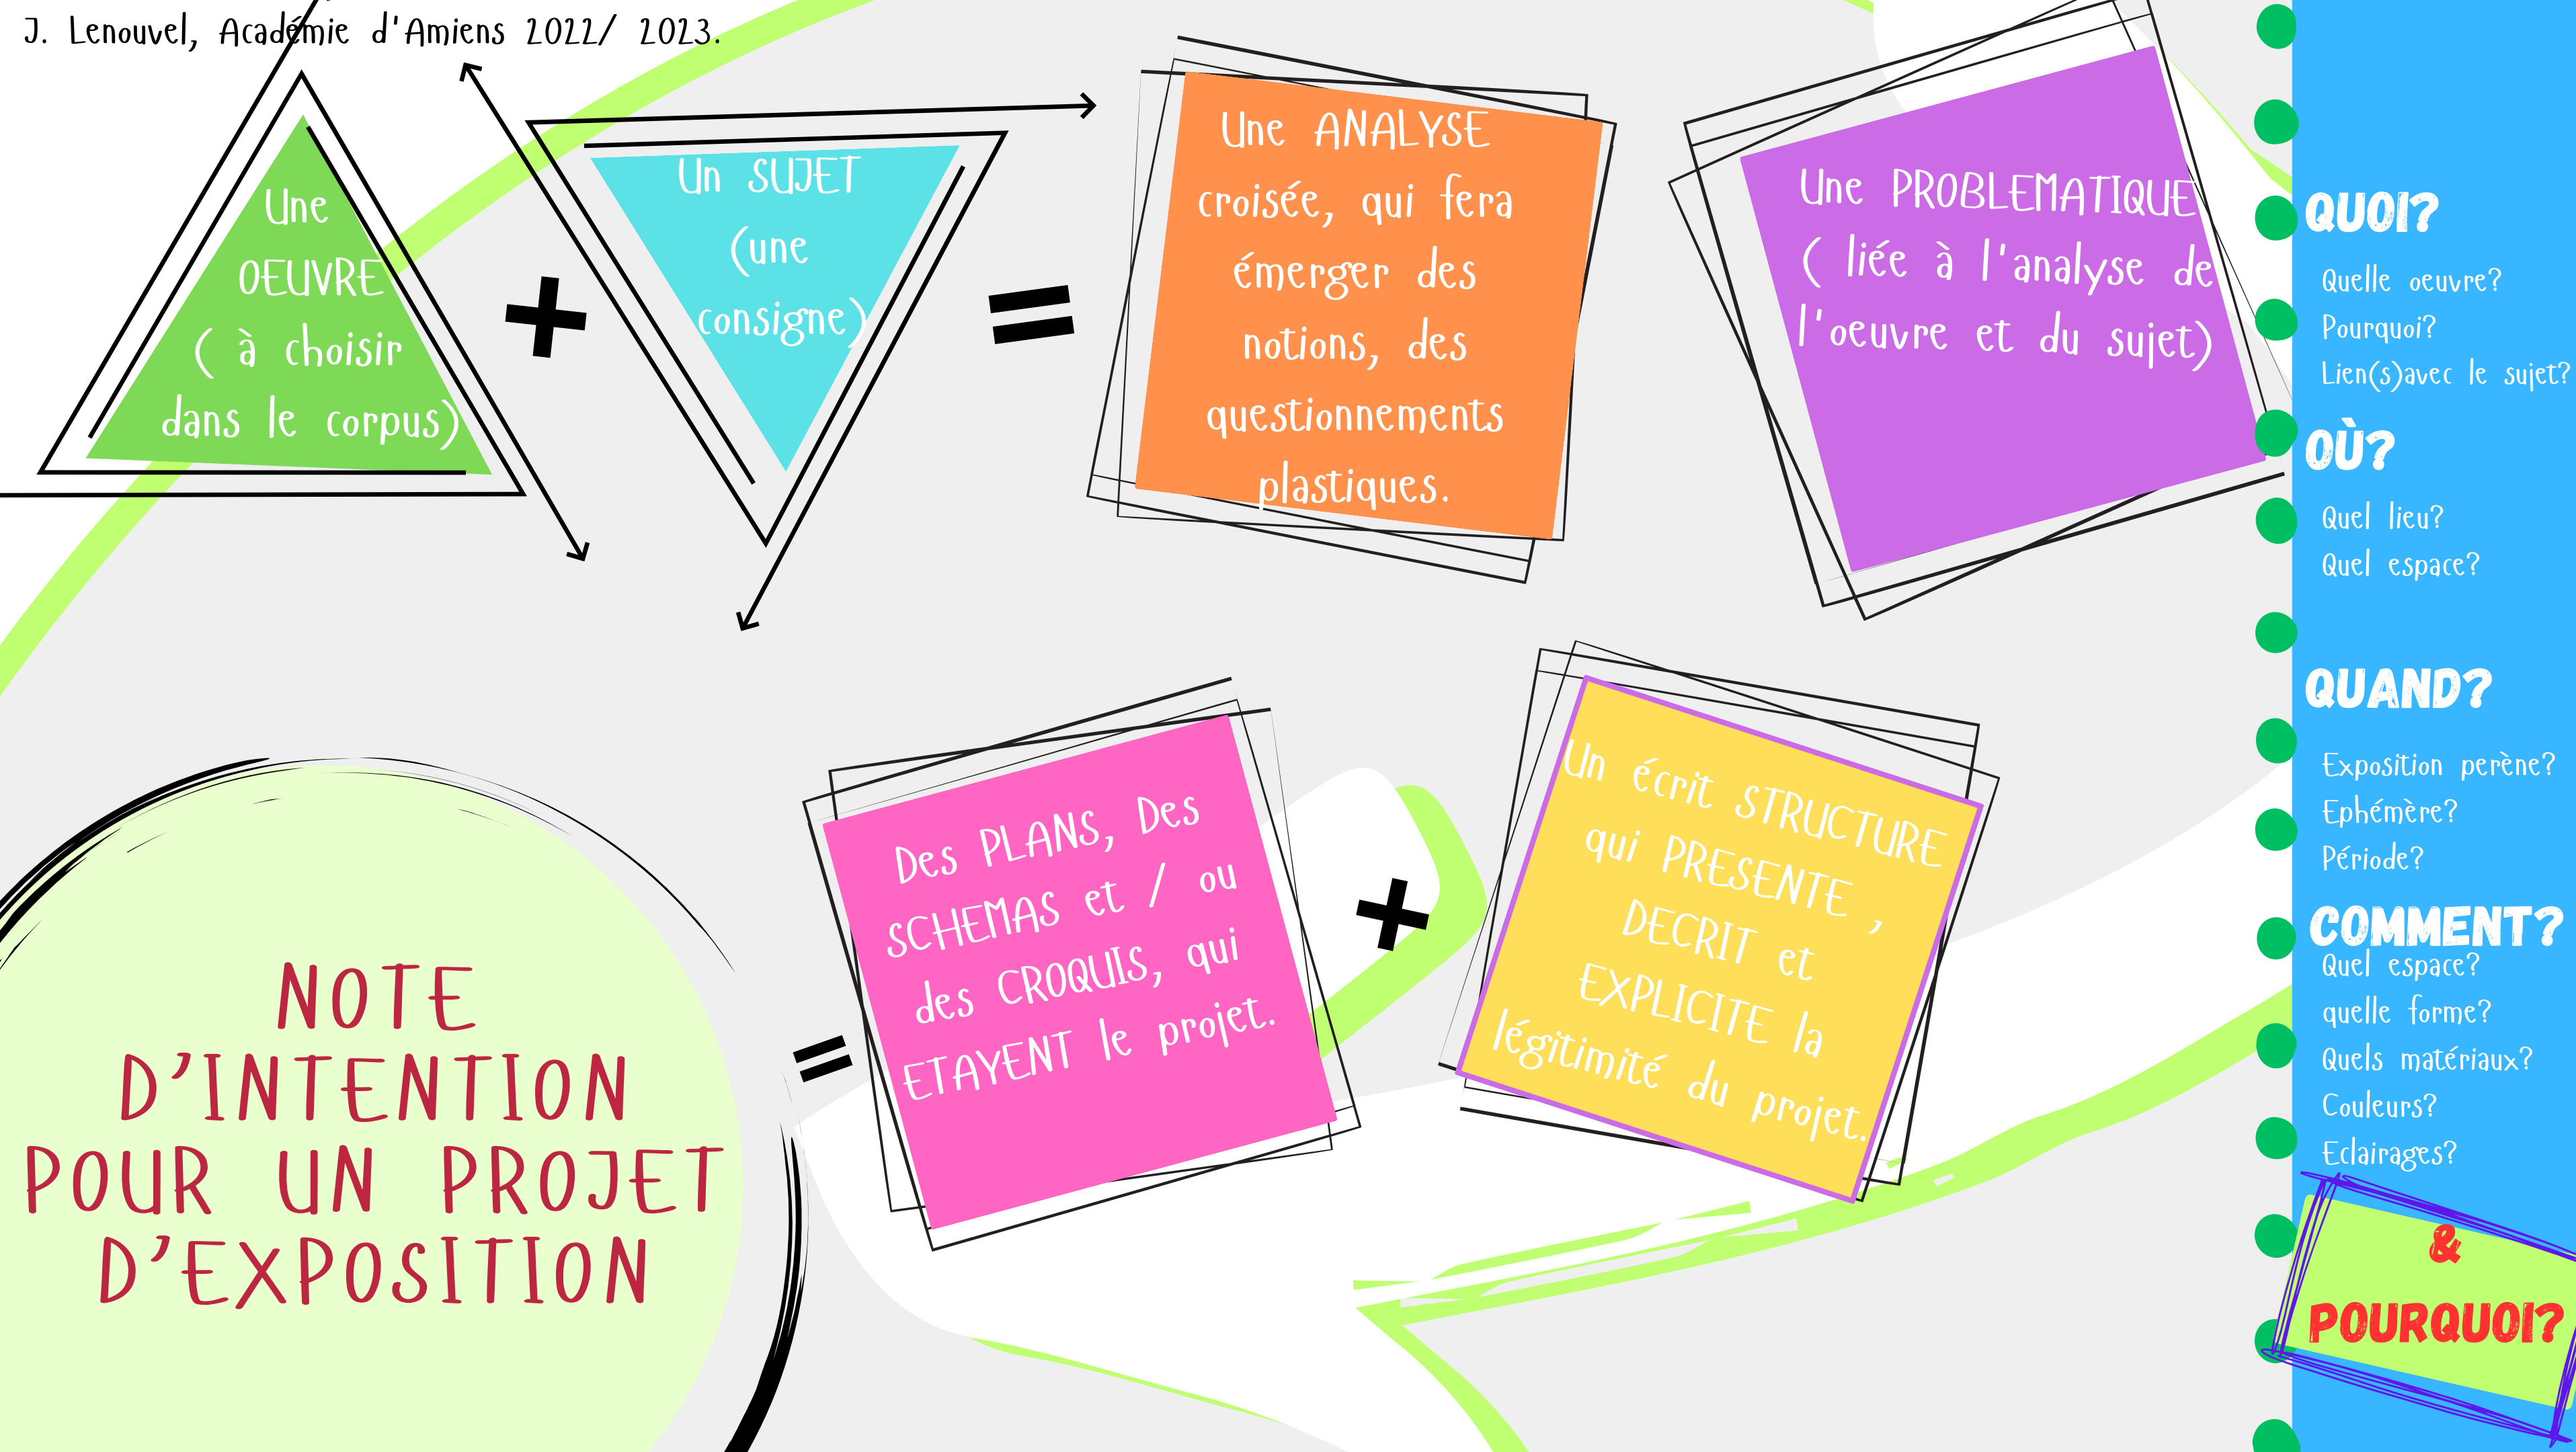 J. Lenouvel, Académie d'Amiens 2022/ 2023.
Une
OEUVRE
( à choisir
dans le corpus)
+
Un SUJET
(une
consigne)
=
Une ANALYSE
croisée, qui fera
émerger des
notions, des
questionnements
plastiques.
Une PROBLEMATIQUE
( liée à l'analyse de
l'oeuvre et du sujet)
NOTE
D'INTENTION
POUR UN PROJET
D'EXPOSITION
=
Des PLANS, Des
SCHEMAS et / ou
des CROQUIS, qui
ETAYENT le projet.
+
Un écrit STRUCTURE
qui PRESENTE ,
DECRIT et
EXPLICITE la
légitimité du projet.
QUOI?
Quelle oeuvre?
Pourquoi?
Lien(s)avec le sujet?
OÙ?
Quel lieu?
Quel espace?
QUAND?
Exposition perène?
Ephémère?
Période?
COMMENT?
Quel espace?
quelle forme?
Quels matériaux?
Couleurs?
Eclairages?
&
POURQUOI?